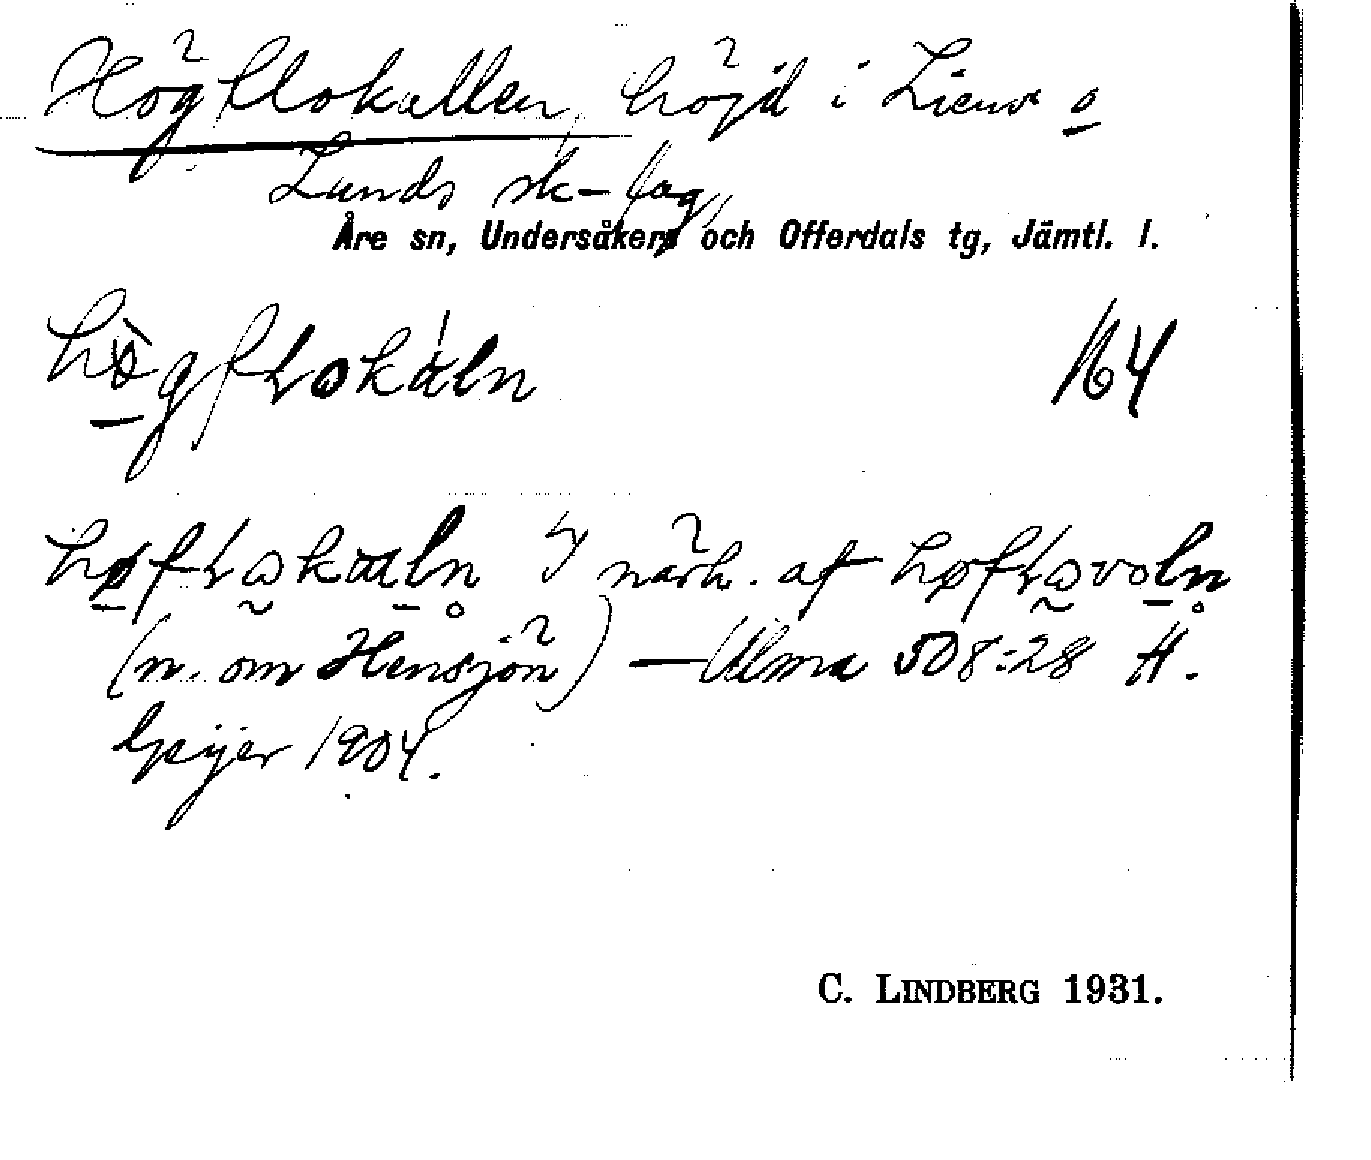 Högflokallen, höjd i Liens o
Lunds sk-lag,
Åre sn, Undersåkers och Offerdals tg, Jämtl. l.
hö̀gfLokáln 164
høfLokaln i närh. af høfLovoln
(n. om Hensjön) — Ulma 508:28 H.
Geijer 1904.
C. LINDBERG 1931.